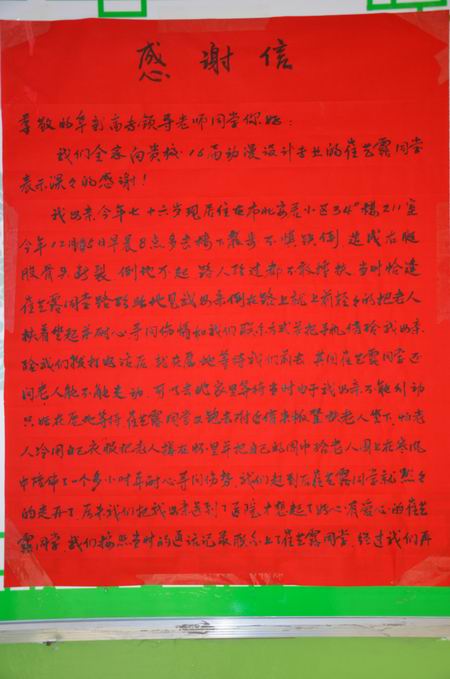 感谢信
尊敬的阜幼高专领导老师同学你好:
我们全家向贵校16届动漫设计专业的崔艺露同学
表示深々的感谢!
我母亲今年七十六岁现居住在市北安居小区34#楼211室
今年12月5日早晨8点多去楼下散步不慎跌倒,造成右腿
股骨头断裂,倒地不起,路人经过都不敢搀扶,当时恰逢
崔艺露同学路经此地见我母亲倒在路上就上前轻々的把老人
扶着坐起并耐心寻问伤情和我们联系方式并把手机借给我母亲
给我们拨打电话后,就在原地等待我们前去,其间崔艺露同学还
问老人能不能走动,可以去她家里等待当时由于我母亲不能行动
只好在原地等待,崔艺露同学又跑去附近借来板凳扶老人坐下,怕老
人冷用自己衣服把老人搂在怀里并把自己的围巾给老人围上在寒风
中陪伴了一个多小时并耐心寻问伤势,我们赶到后崔艺露同学就默々
的走开了,后来我们把我母亲送到了医院才想起了好心有爱心的崔艺
露同学,我们按照当时的通话记录联系上了崔艺露同学,经过我们再